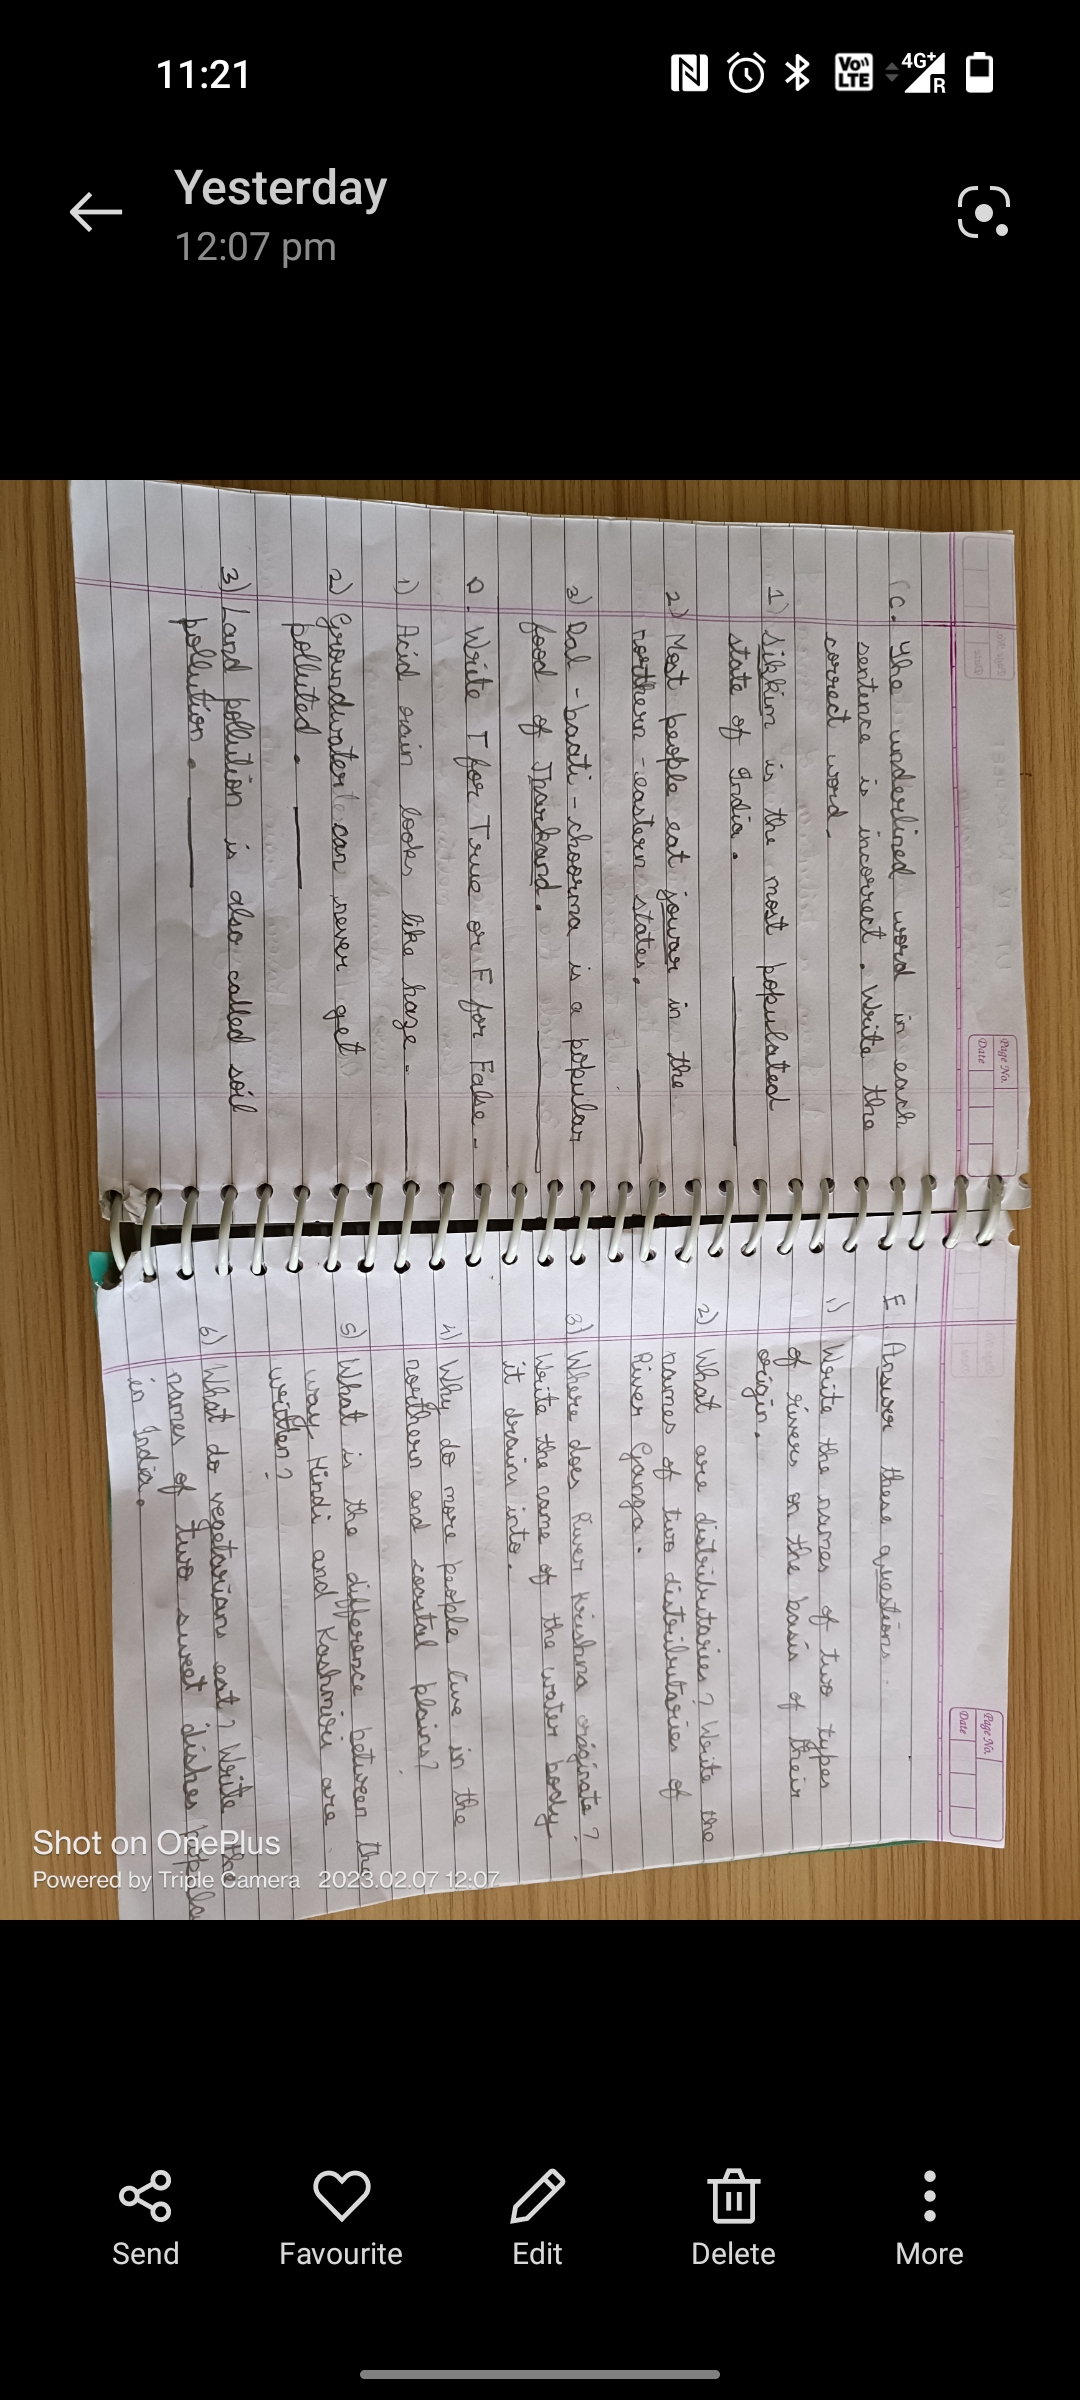 11:21
Vo LTE 4G+ R
Yesterday
12:07 pm
Page No.
Date
C. The underlined word in each
sentence is incorrect. Write the
correct word.
1) Sikkim is the most populated
state of India.
2) Most people eat jowar in the
northern-eastern states.
3) Dal-baati-choorma is a popular
food of Jharkand.
D. Write T for True or F for False.
1) Acid rain looks like haze.
2) Groundwater can never get
polluted.
3) Land pollution is also called soil
pollution.
Page No.
Date
E Answer these questions:
1) Write the names of two types
of rivers on the basis of their
origin.
2) What are distributaries? Write the
names of two distributaries of
River Ganga.
3) Where does River Krishna originate?
Write the name of the water body
it drains into.
4) Why do more people live in the
northern and coastal plains?
5) What is the difference between the
way Hindi and Kashmiri are
written?
6) What do vegetarians eat? Write the
names of two sweet dishes
in India.
Shot on OnePlus
Powered by Triple Camera 2023.02.07 12:07
Send Favourite Edit Delete More